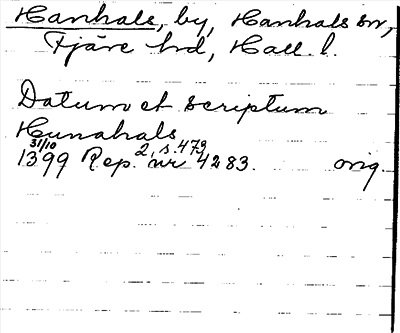 Hanhals, by, Hanhals sn,
Fjäre hd, Hall. l.
Datum et scriptum
Hunahals
31/10
1399 Rep. 2, s. 473 nr 4283. orig.